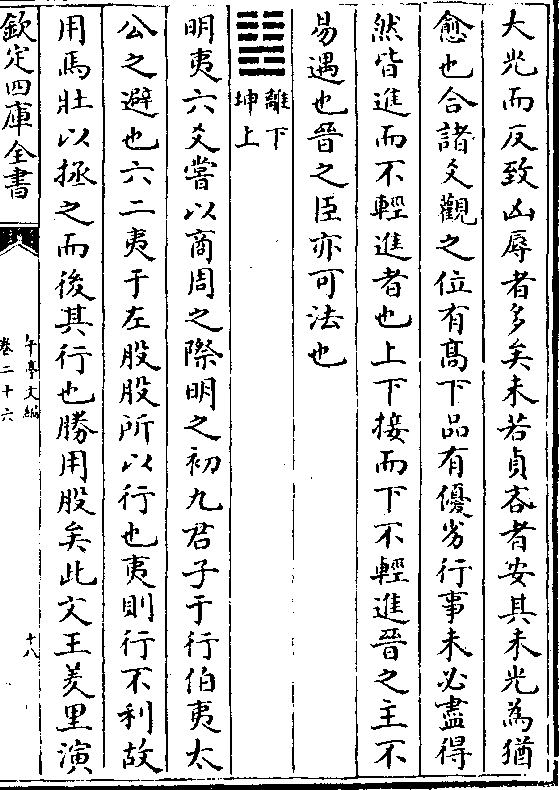 大光而反致凶辱者多矣未若貞吝者安其未光為猶
愈也合諸爻觀之位有髙下品有優劣行事未必盡得
然皆進而不輕進者也上下接而下不輕進晉之主不
易遇也晉之臣亦可法也
離下
坤上
明夷六爻嘗以商周之際明之初九君子于行伯夷太
公之避也六二夷于左股股所以行也夷則行不利故
用馬壯以拯之而後其行也勝用股矣此文王羑里演
欽定四庫全書
午亭文編
卷二十六
十八